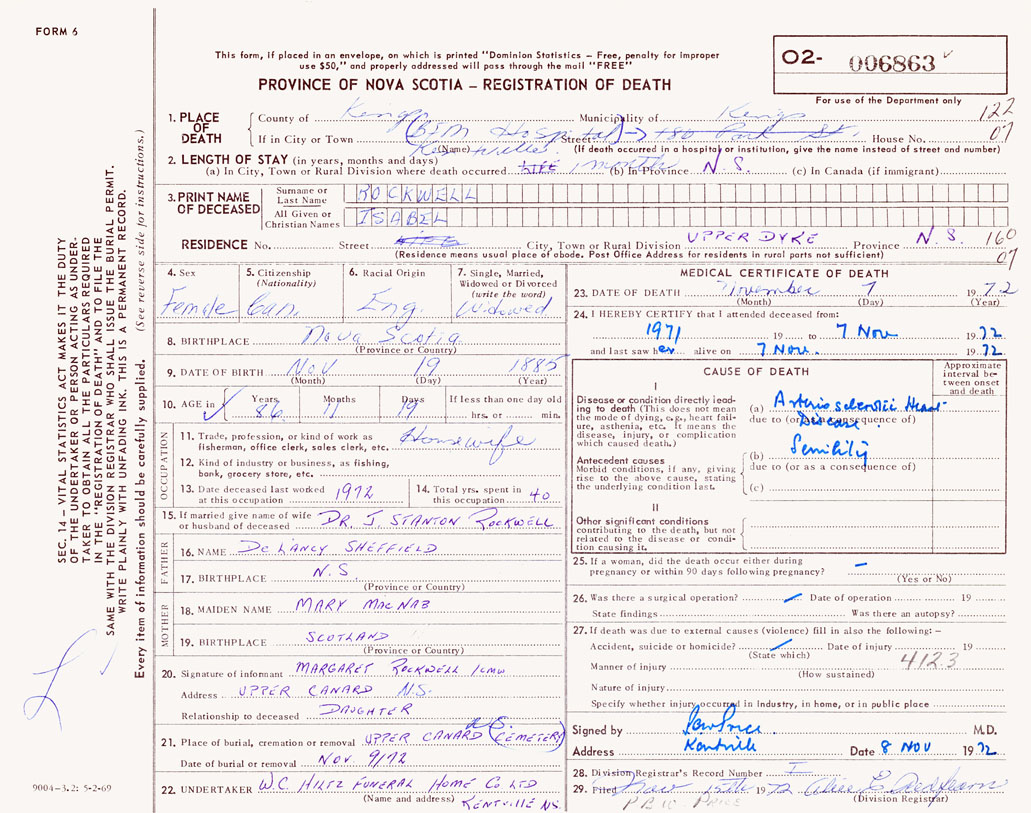 FORM 6
This form, if placed in an envelope, on which is printed "Dominion Statistics – Free, penalty for improper
use $50," and properly addressed will pass through the mail "FREE"
PROVINCE OF NOVA SCOTIA – REGISTRATION OF DEATH
O2- 006863
For use of the Department only
1. PLACE OF DEATH
County of Kings Municipality of Kings 122
If in City or Town (BFM Hospital) → 186 Park St. Street House No. 07
(Name) (If death occurred in a hospital or institution, give the name instead of street and number)
2. LENGTH OF STAY (in years, months and days)
(a) In City, Town or Rural Division where death occurred LIFE 1 month (b) In Province N.S. (c) In Canada (if immigrant)
3. PRINT NAME OF DECEASED
Surname or Last Name ROCKWELL
All Given or Christian Names ISABEL
RESIDENCE No. Street City, Town or Rural Division UPPER DYKE Province N.S. 160
(Residence means usual place of abode. Post Office Address for residents in rural parts not sufficient) 07
4. Sex Female
5. Citizenship (Nationality) Can.
6. Racial Origin Eng.
7. Single, Married, Widowed or Divorced (write the word) Widowed
8. BIRTHPLACE Nova Scotia
(Province or Country)
9. DATE OF BIRTH Nov 19 1885
(Month) (Day) (Year)
10. AGE in Years 86 Months 11 Days 19 If less than one day old
hrs. or min.
OCCUPATION
11. Trade, profession, or kind of work as Housewife
fisherman, office clerk, sales clerk, etc.
12. Kind of industry or business, as fishing,
bank, grocery store, etc.
13. Date deceased last worked at this occupation 1972
14. Total yrs. spent in this occupation 40
15. If married give name of wife or husband of deceased DR. J. STANTON ROCKWELL
FATHER
16. NAME DE LANCY SHEFFIELD
17. BIRTHPLACE N.S
(Province or Country)
MOTHER
18. MAIDEN NAME MARY MACNAB
19. BIRTHPLACE SCOTLAND
(Province or Country)
20. Signature of informant MARGARET ROCKWELL
Address UPPER CANARD N.S.
Relationship to deceased DAUGHTER
21. Place of burial, cremation or removal UPPER CANARD N.S. (CEMETERY)
Date of burial or removal NOV. 9/72
22. UNDERTAKER W.C. HILTZ FUNERAL HOME CO LTD
(Name and address) KENTVILLE NS.
MEDICAL CERTIFICATE OF DEATH
23. DATE OF DEATH November 7 1972
(Month) (Day) (Year)
24. I HEREBY CERTIFY that I attended deceased from:
1971 19 to 7 Nov 1972
and last saw her alive on 7 Nov. 1972
CAUSE OF DEATH
Approximate interval between onset and death
I
Disease or condition directly leading to death (This does not mean the mode of dying, e.g., heart failure, asthenia, etc. It means the disease, injury, or complication which caused death.)
(a) Arteriosclerotic Heart Disease
due to (or as a consequence of)
Antecedent causes
Morbid conditions, if any, giving rise to the above cause, stating the underlying condition last.
(b) Senility
due to (or as a consequence of)
(c)
II
Other significant conditions
contributing to the death, but not related to the disease or condition causing it.
25. If a woman, did the death occur either during
pregnancy or within 90 days following pregnancy? –
(Yes or No)
26. Was there a surgical operation? – Date of operation 19
State findings Was there an autopsy?
27. If death was due to external causes (violence) fill in also the following: –
Accident, suicide or homicide? – Date of injury 19
(State which)
Manner of injury 4123
(How sustained)
Nature of injury
Specify whether injury occurred in Industry, in home, or in public place
Signed by PBW Price M.D.
Address Kentville Date 8 NOV 1972
28. Division Registrar's Record Number I
29. Filed Nov 15th 1972 Alice E.
(Division Registrar)
P B W. PRICE
SEC. 14 – VITAL STATISTICS ACT MAKES IT THE DUTY
OF THE UNDERTAKER OR PERSON ACTING AS UNDER-
TAKER TO OBTAIN ALL THE PARTICULARS REQUIRED
IN THE "REGISTRATION OF DEATH" AND TO FILE THE
SAME WITH THE DIVISION REGISTRAR WHO SHALL ISSUE THE BURIAL PERMIT.
WRITE PLAINLY WITH UNFADING INK. THIS IS A PERMANENT RECORD.
Every item of information should be carefully supplied. (See reverse side for instructions.)
9004-3.2: 5-2-69